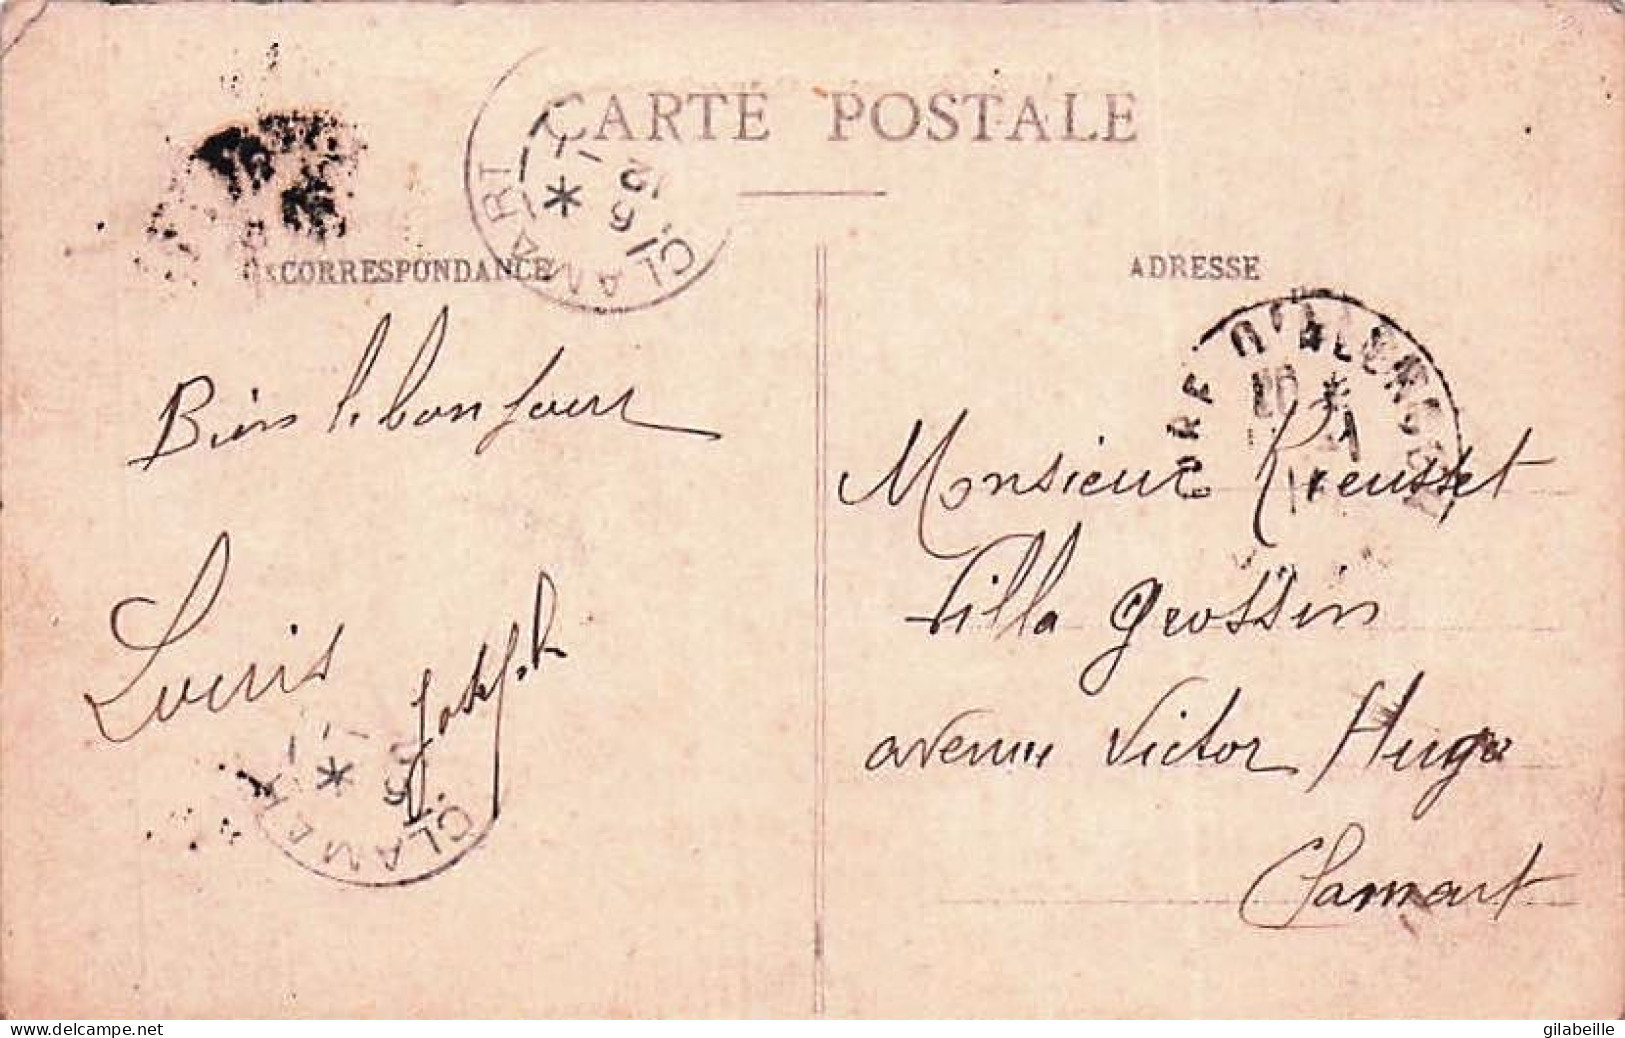 CARTE POSTALE
CORRESPONDANCE
ADRESSE
Bien le bonjour
Louis
Joseph
Monsieur
Villa Grossin
avenue Victor Hugo
Clamart
CLAMART
12
CLAMAR
www.delcampe.net
gilabeille